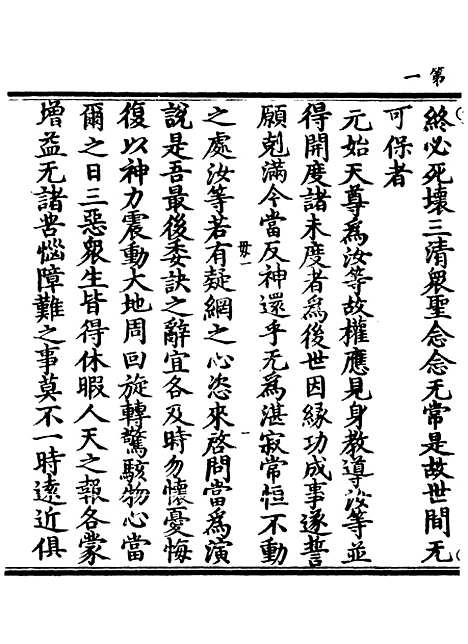 第一
終必死壞三清衆聖念念无常是故世間无
可保者
元始天尊爲汝等故權應見身教導汝等並
得開度諸未度者爲後世因緣功成事遂誓
願剋滿今當反神還乎无爲湛寂常恒不動
之處汝等若有疑網之心恣來啓問當爲演
說是吾最後委訣之辭宜各及時勿懷憂悔
復以神力震動大地周回旋轉驚駭物心當
爾之日三惡衆生皆得休暇人天之報各蒙
增益无諸苦惱障難之事莫不一時遠近俱